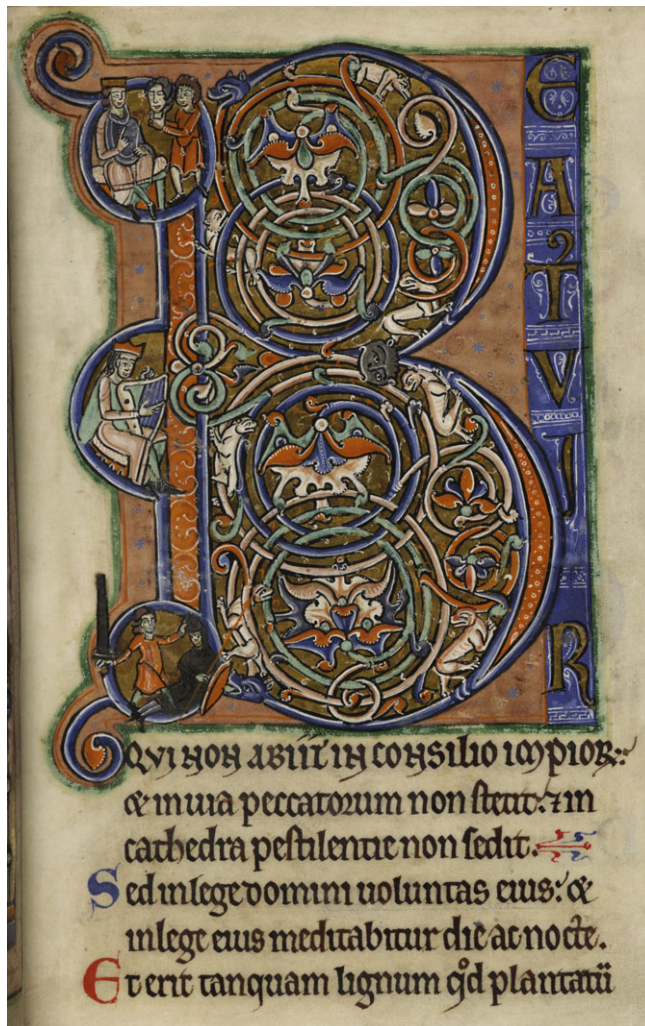 BEATUS UIR
QUI NON ABIIT IN CONSILIO IMPIOR:
& in uia peccatorum non stetit: & in
cathedra pestilentie non sedit.
Sed in lege domini uoluntas eius: &
in lege eius meditabitur die ac nocte.
Et erit tanquam lignum qđ plantatū